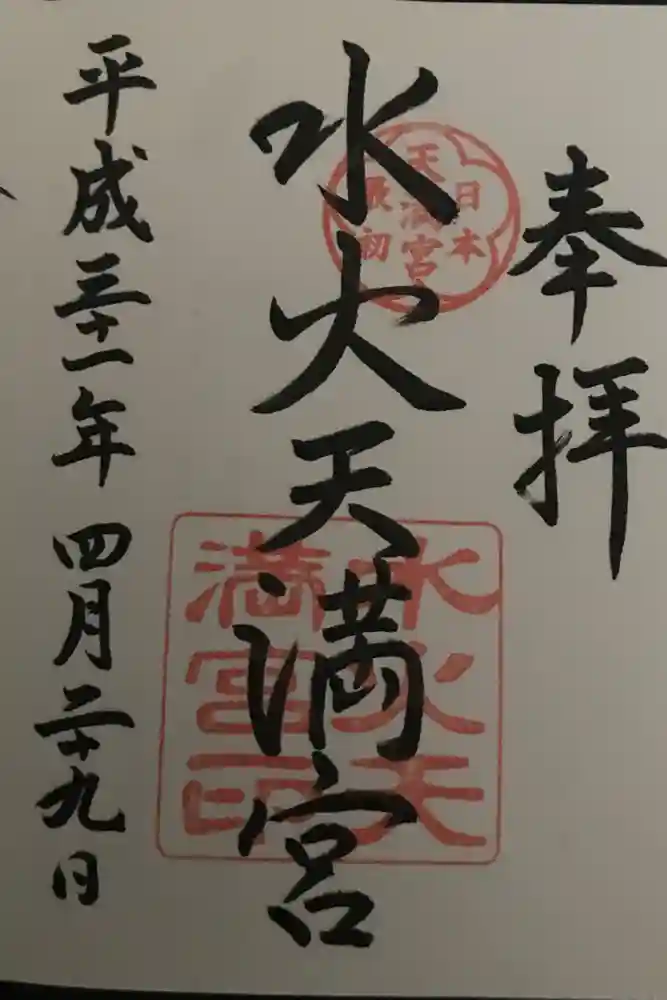 奉拝
日本
天満宮
最初
水火天満宮
水火天
満宮印
平成三十一年四月二十九日